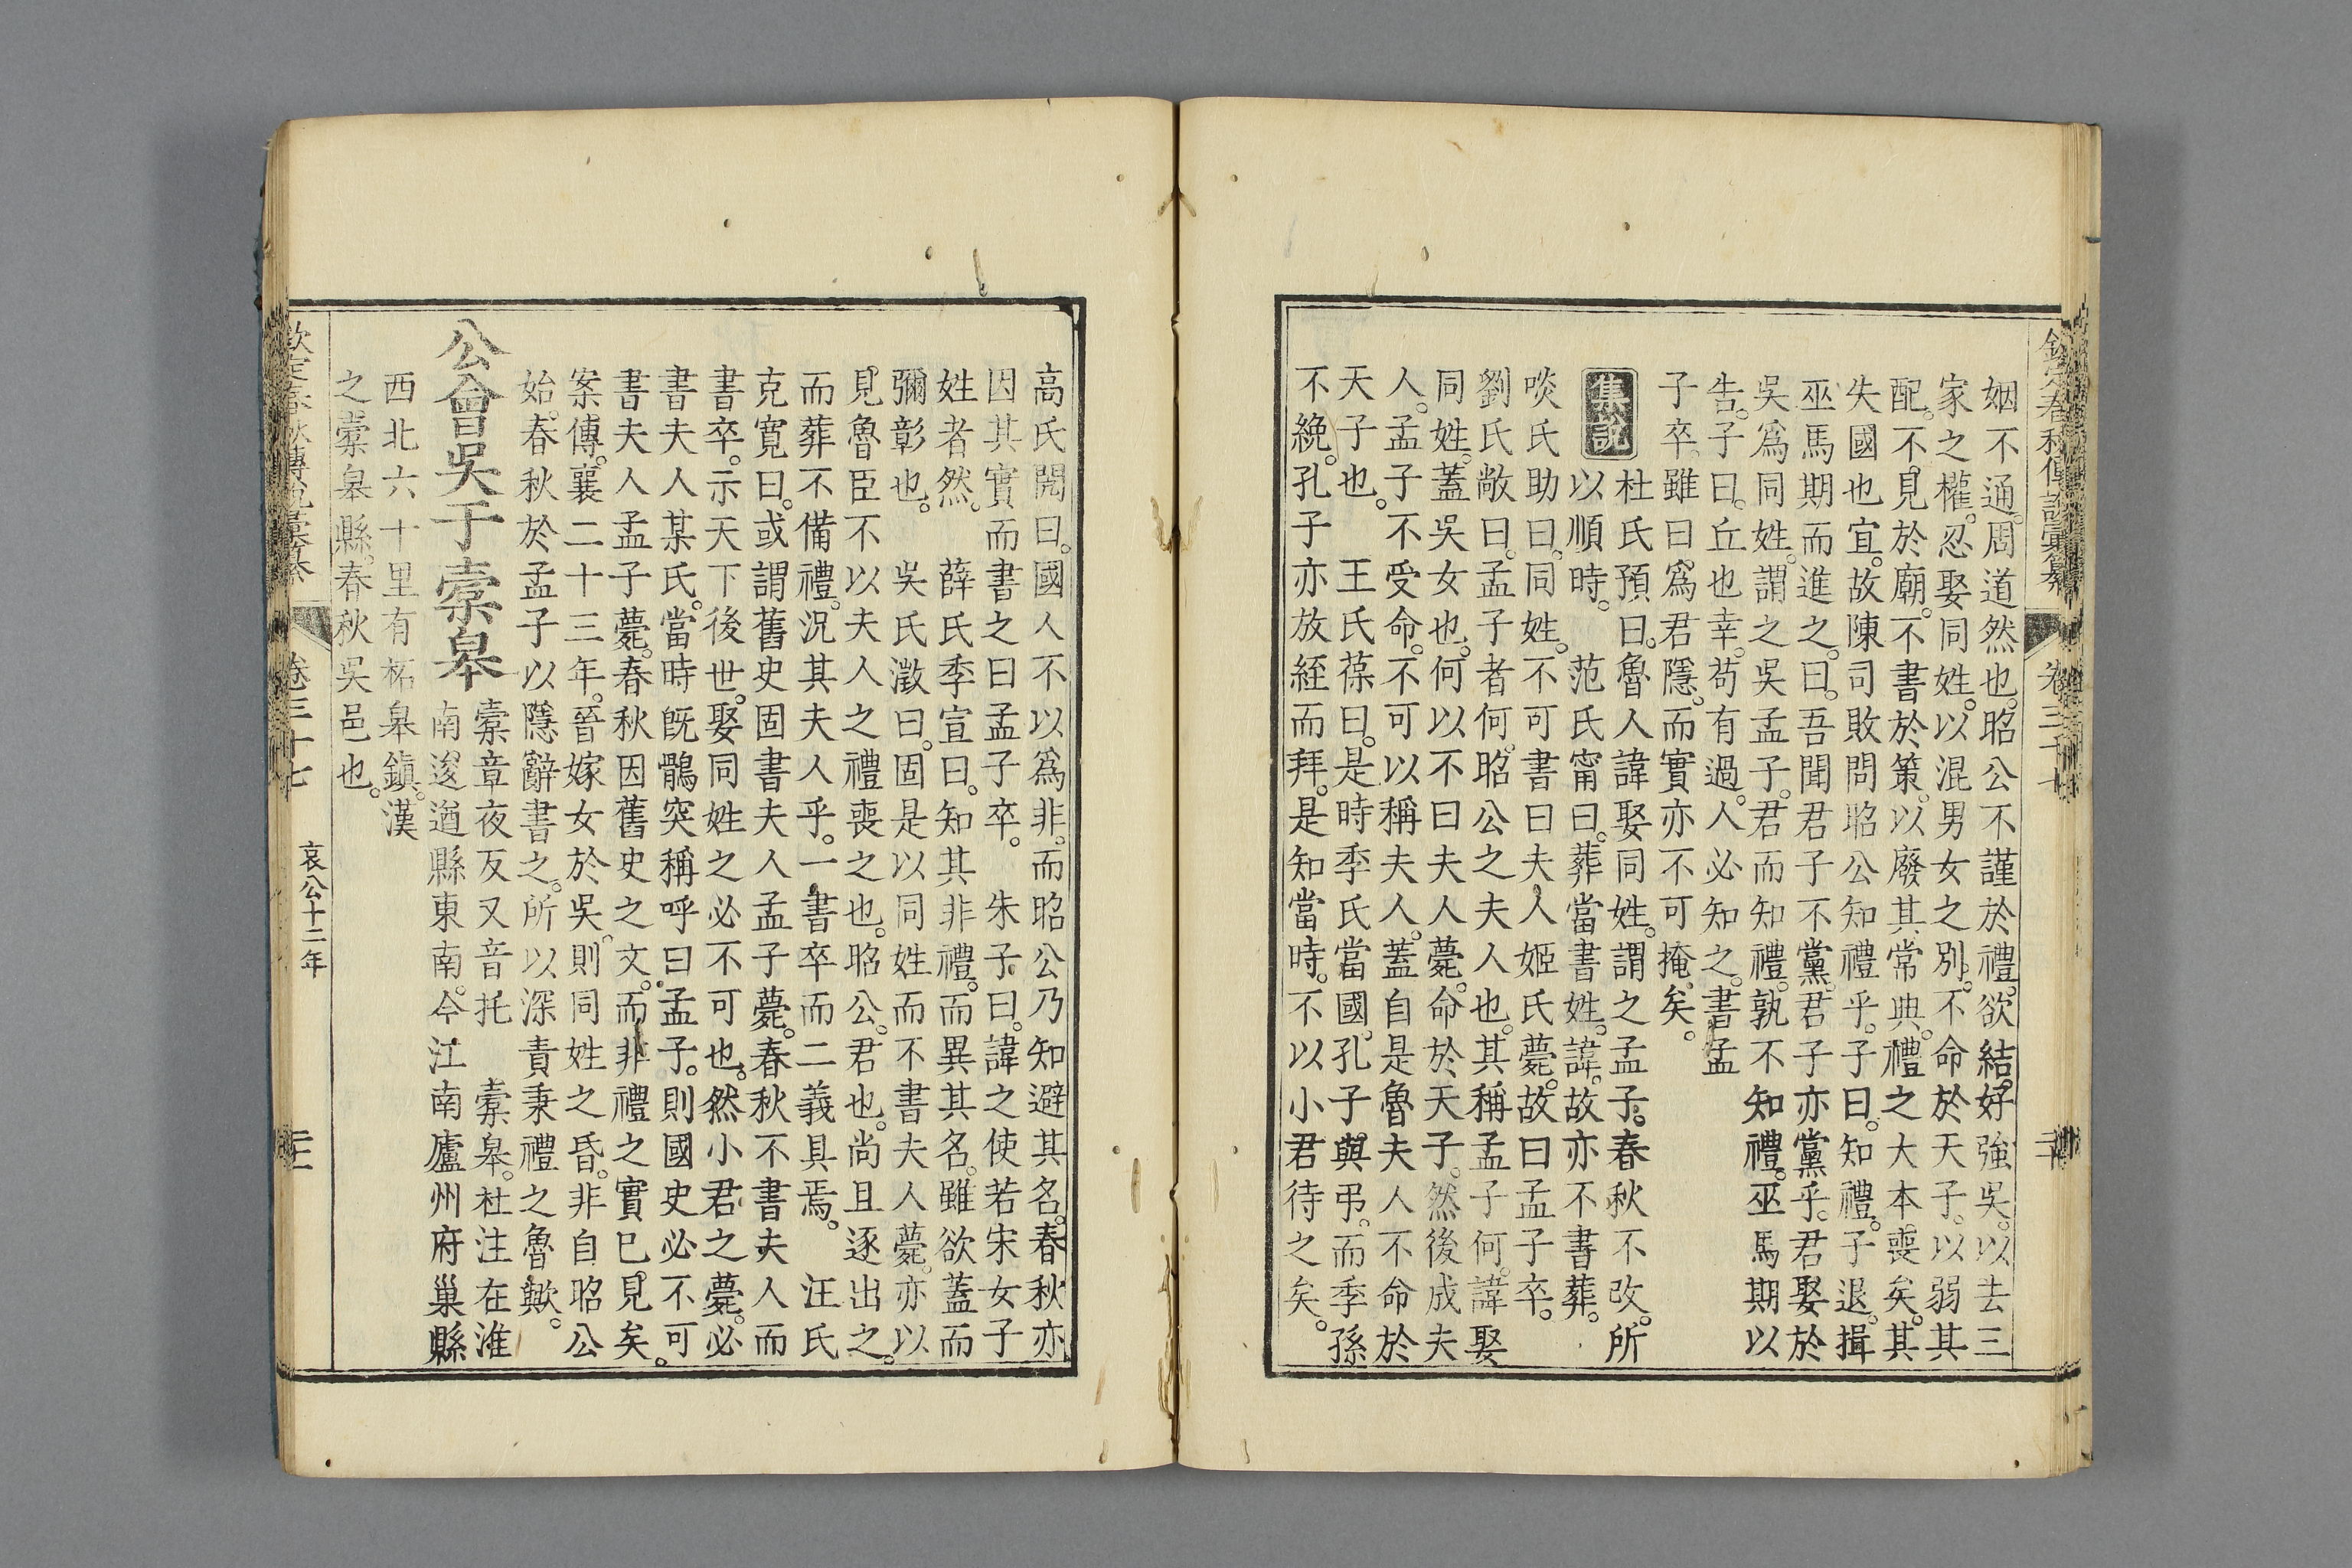 欽定春秋傳說彙纂 卷三十七
姻不通。周道然也。昭公不謹於禮。欲結好強吳。以去三
家之權。忍娶同姓。以混男女之別。不命於天子。以弱其
配。不見於廟。不書於策。以廢其常典。禮之大本喪矣。其
失國也宜。故陳司敗問昭公知禮乎。子曰。知禮。子退。揖
巫馬期而進之。曰。吾聞君子不黨。君子亦黨乎。君娶於
吳爲同姓。謂之吳孟子。君而知禮。孰不知禮。巫馬期以
告。子曰。丘也幸。苟有過。人必知之。書孟
子卒。雖曰爲君隱。而實亦不可掩矣。
集說 杜氏預曰。魯人諱娶同姓。謂之孟子。春秋不改。所
以順時。 范氏甯曰。葬當書姓。諱。故亦不書葬。
啖氏助曰。同姓。不可書曰夫人姬氏薨。故曰孟子卒。
劉氏敞曰。孟子者何。昭公之夫人也。其稱孟子何。諱娶
同姓。蓋吳女也。何以不曰夫人薨。命於天子。然後成夫
人。孟子不受命。不可以稱夫人。蓋自是魯夫人不命於
天子也。 王氏葆曰。是時季氏當國。孔子與弔。而季孫
不絻。孔子亦放絰而拜。是知當時。不以小君待之矣。
高氏閌曰。國人不以爲非。而昭公乃知避其名。春秋亦
因其實而書之曰孟子卒。 朱子曰。諱之使若宋女子
姓者然。 薛氏季宣曰。知其非禮。而異其名。雖欲蓋而
彌彰也。 吳氏澂曰。固是以同姓而不書夫人薨。亦以
見魯臣不以夫人之禮喪之也。昭公。君也。尚且逐出之。
而葬不備禮。況其夫人乎。一書卒而二義具焉。 汪氏
克寬曰。或謂舊史固書夫人孟子薨。春秋不書夫人而
書卒。示天下後世。娶同姓之必不可也。然小君之薨。必
書夫人某氏。當時旣鶻突稱呼曰孟子。則國史必不可
書夫人孟子薨。春秋因舊史之文。而非禮之實已見矣。
案傳。襄二十三年。晉嫁女於吳。則同姓之昏。非自昭公
始。春秋於孟子以隱辭書之。所以深責秉禮之魯歟。
公會吳于橐皋 橐章夜反又音托 橐皋。杜注在淮
南逡遒縣東南。今江南廬州府巢縣
西北六十里有柘皋鎮。漢
之橐皋縣。春秋吳邑也。
欽定春秋傳說彙纂 卷三十七 哀公十二年